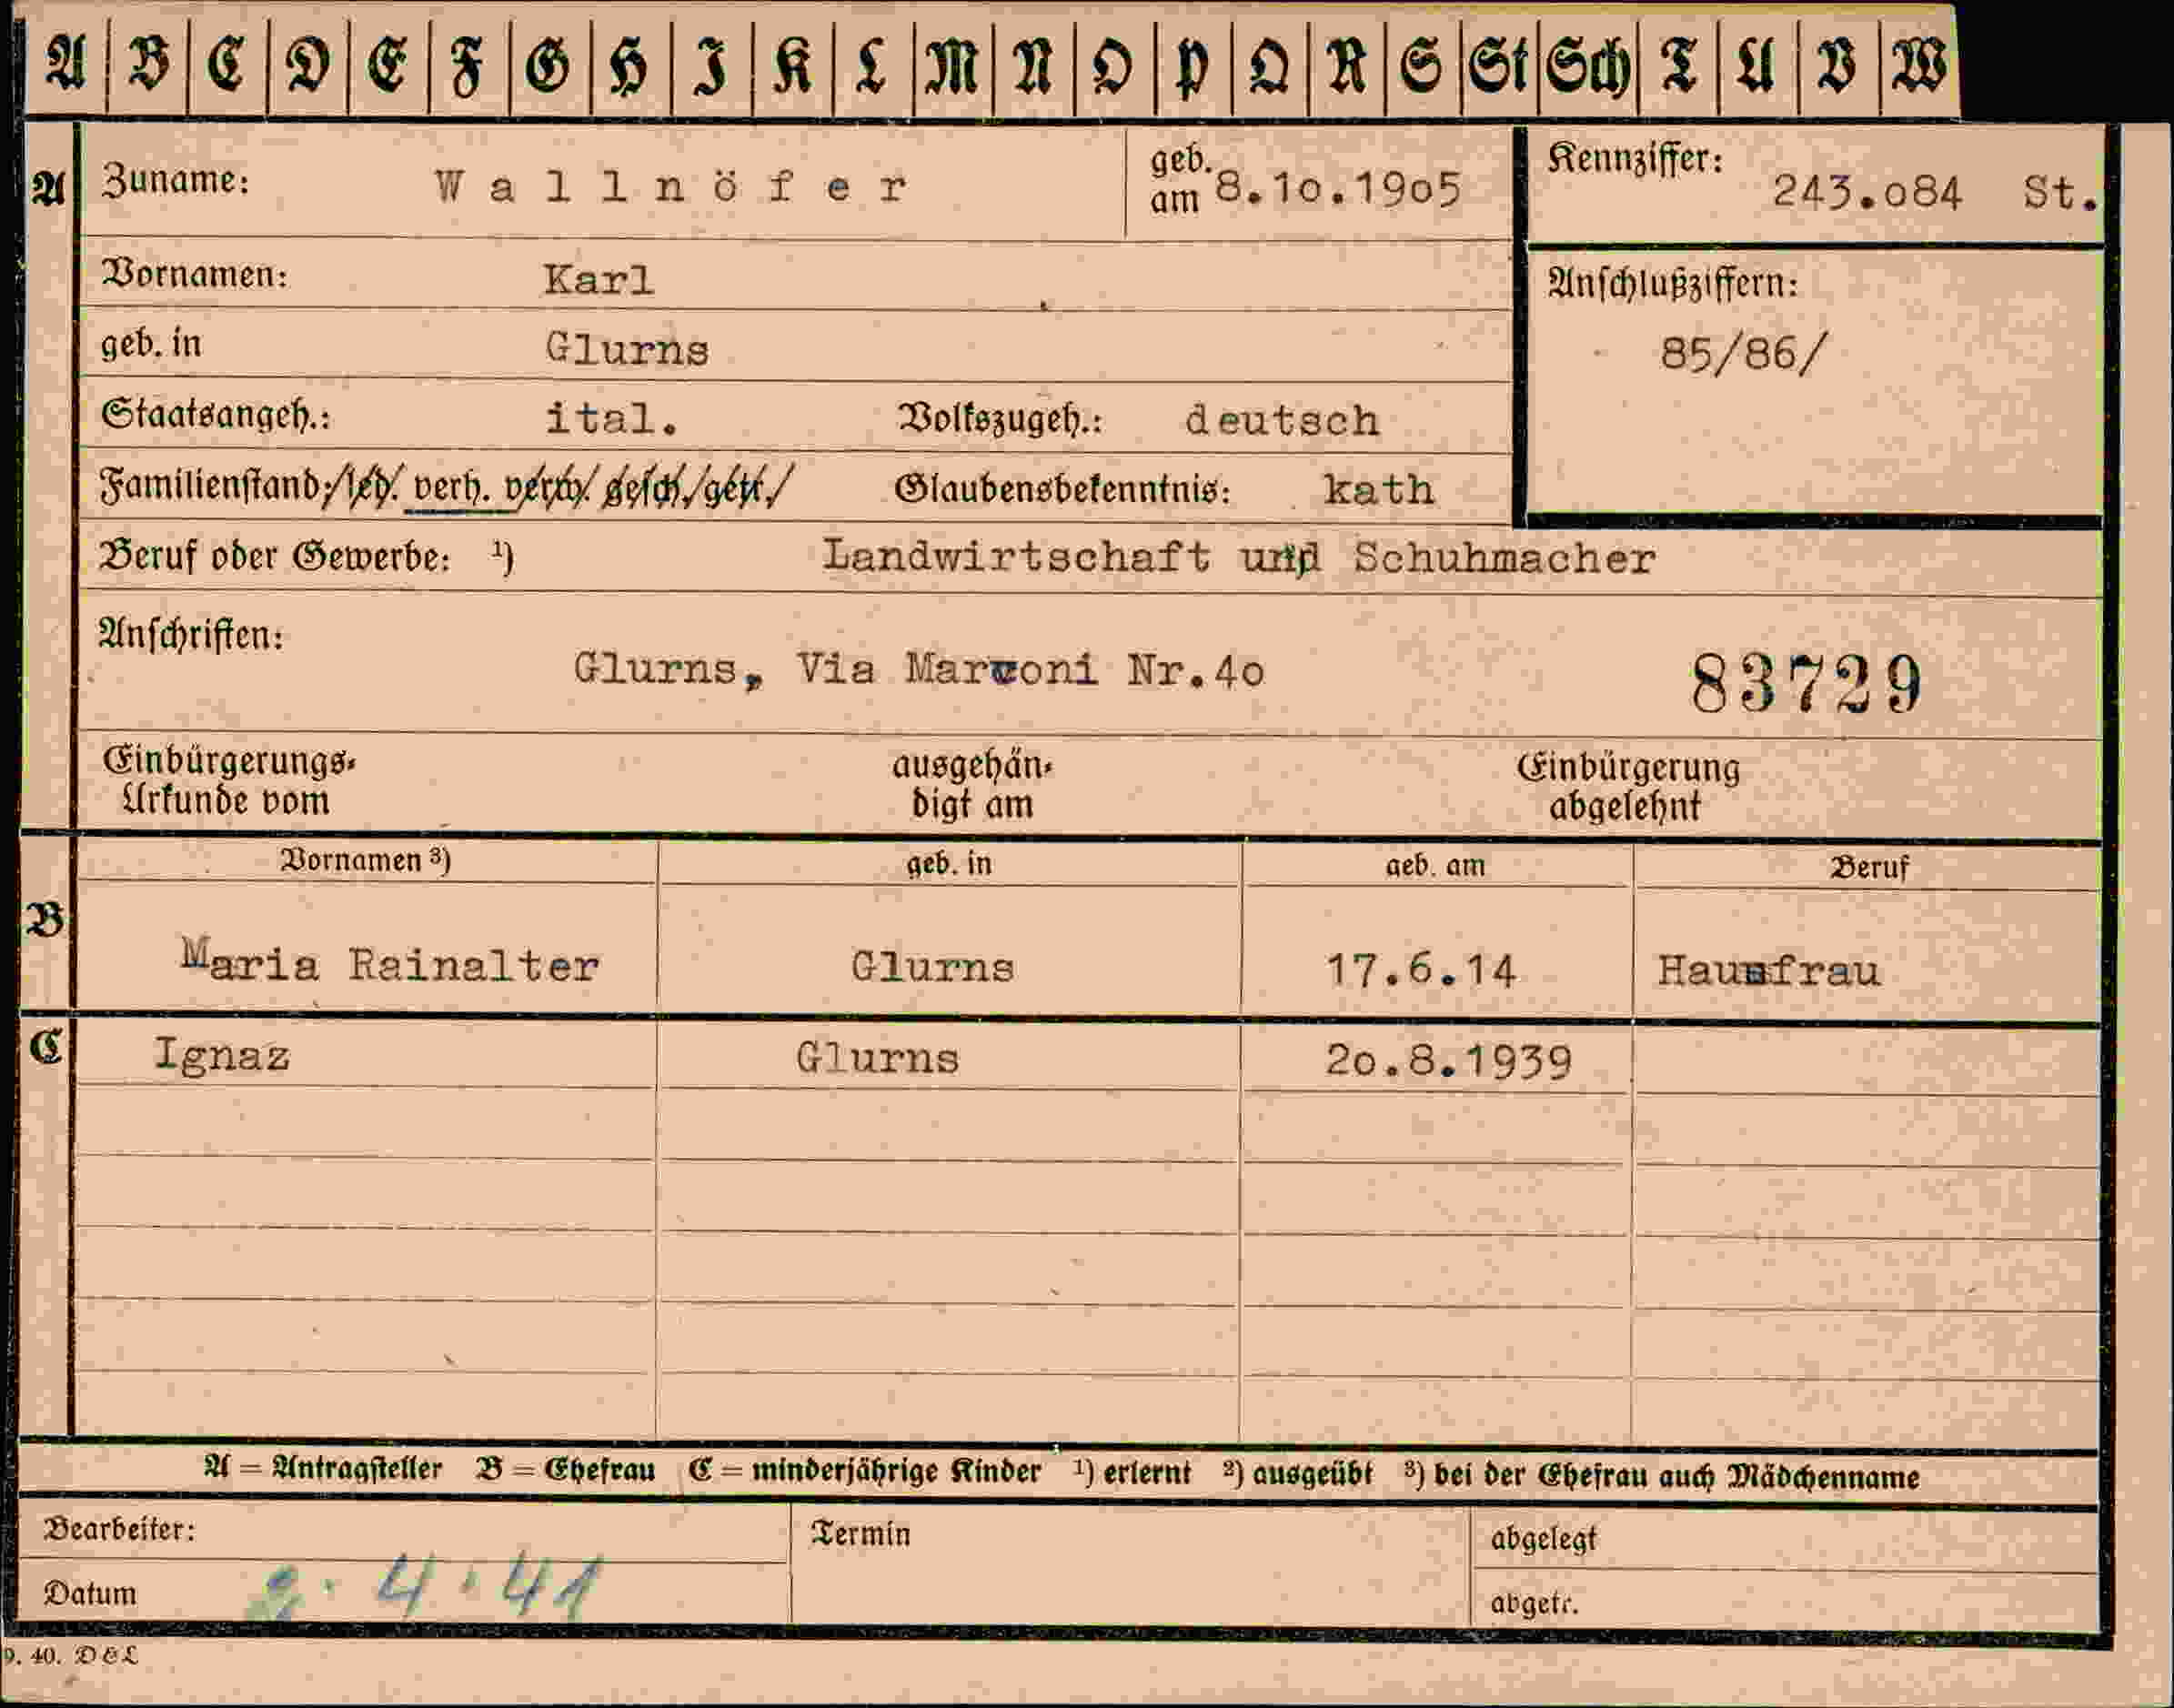 A B C D E F G H I K L M N O P Q R S St Sch T U V W
A Zuname: Wallnöfer geb. am 8.10.1905 Kennziffer: 243.084 St.
Vornamen: Karl Anschlußziffern:
geb. in Glurns 85/86/
Staatsangeh.: ital. Volkszugeh.: deutsch
Familienstand: led. verh. verw. gesch. getr. Glaubensbekenntnis: kath
Beruf oder Gewerbe: ¹) Landwirtschaft und Schuhmacher
Anschriften:
Glurns, Via Marconi Nr.40 83729
Einbürgerungs- ausgehän- Einbürgerung
Urkunde vom digt am abgelehnt
Vornamen ³) geb. in geb. am Beruf
B Maria Rainalter Glurns 17.6.14 Hausfrau
C Ignaz Glurns 20.8.1939
A = Antragsteller B = Ehefrau C = minderjährige Kinder ¹) erlernt ²) ausgeübt ³) bei der Ehefrau auch Mädchenname
Bearbeiter: Termin abgelegt
Datum 4.41 abgetr.
9. 40. D & L